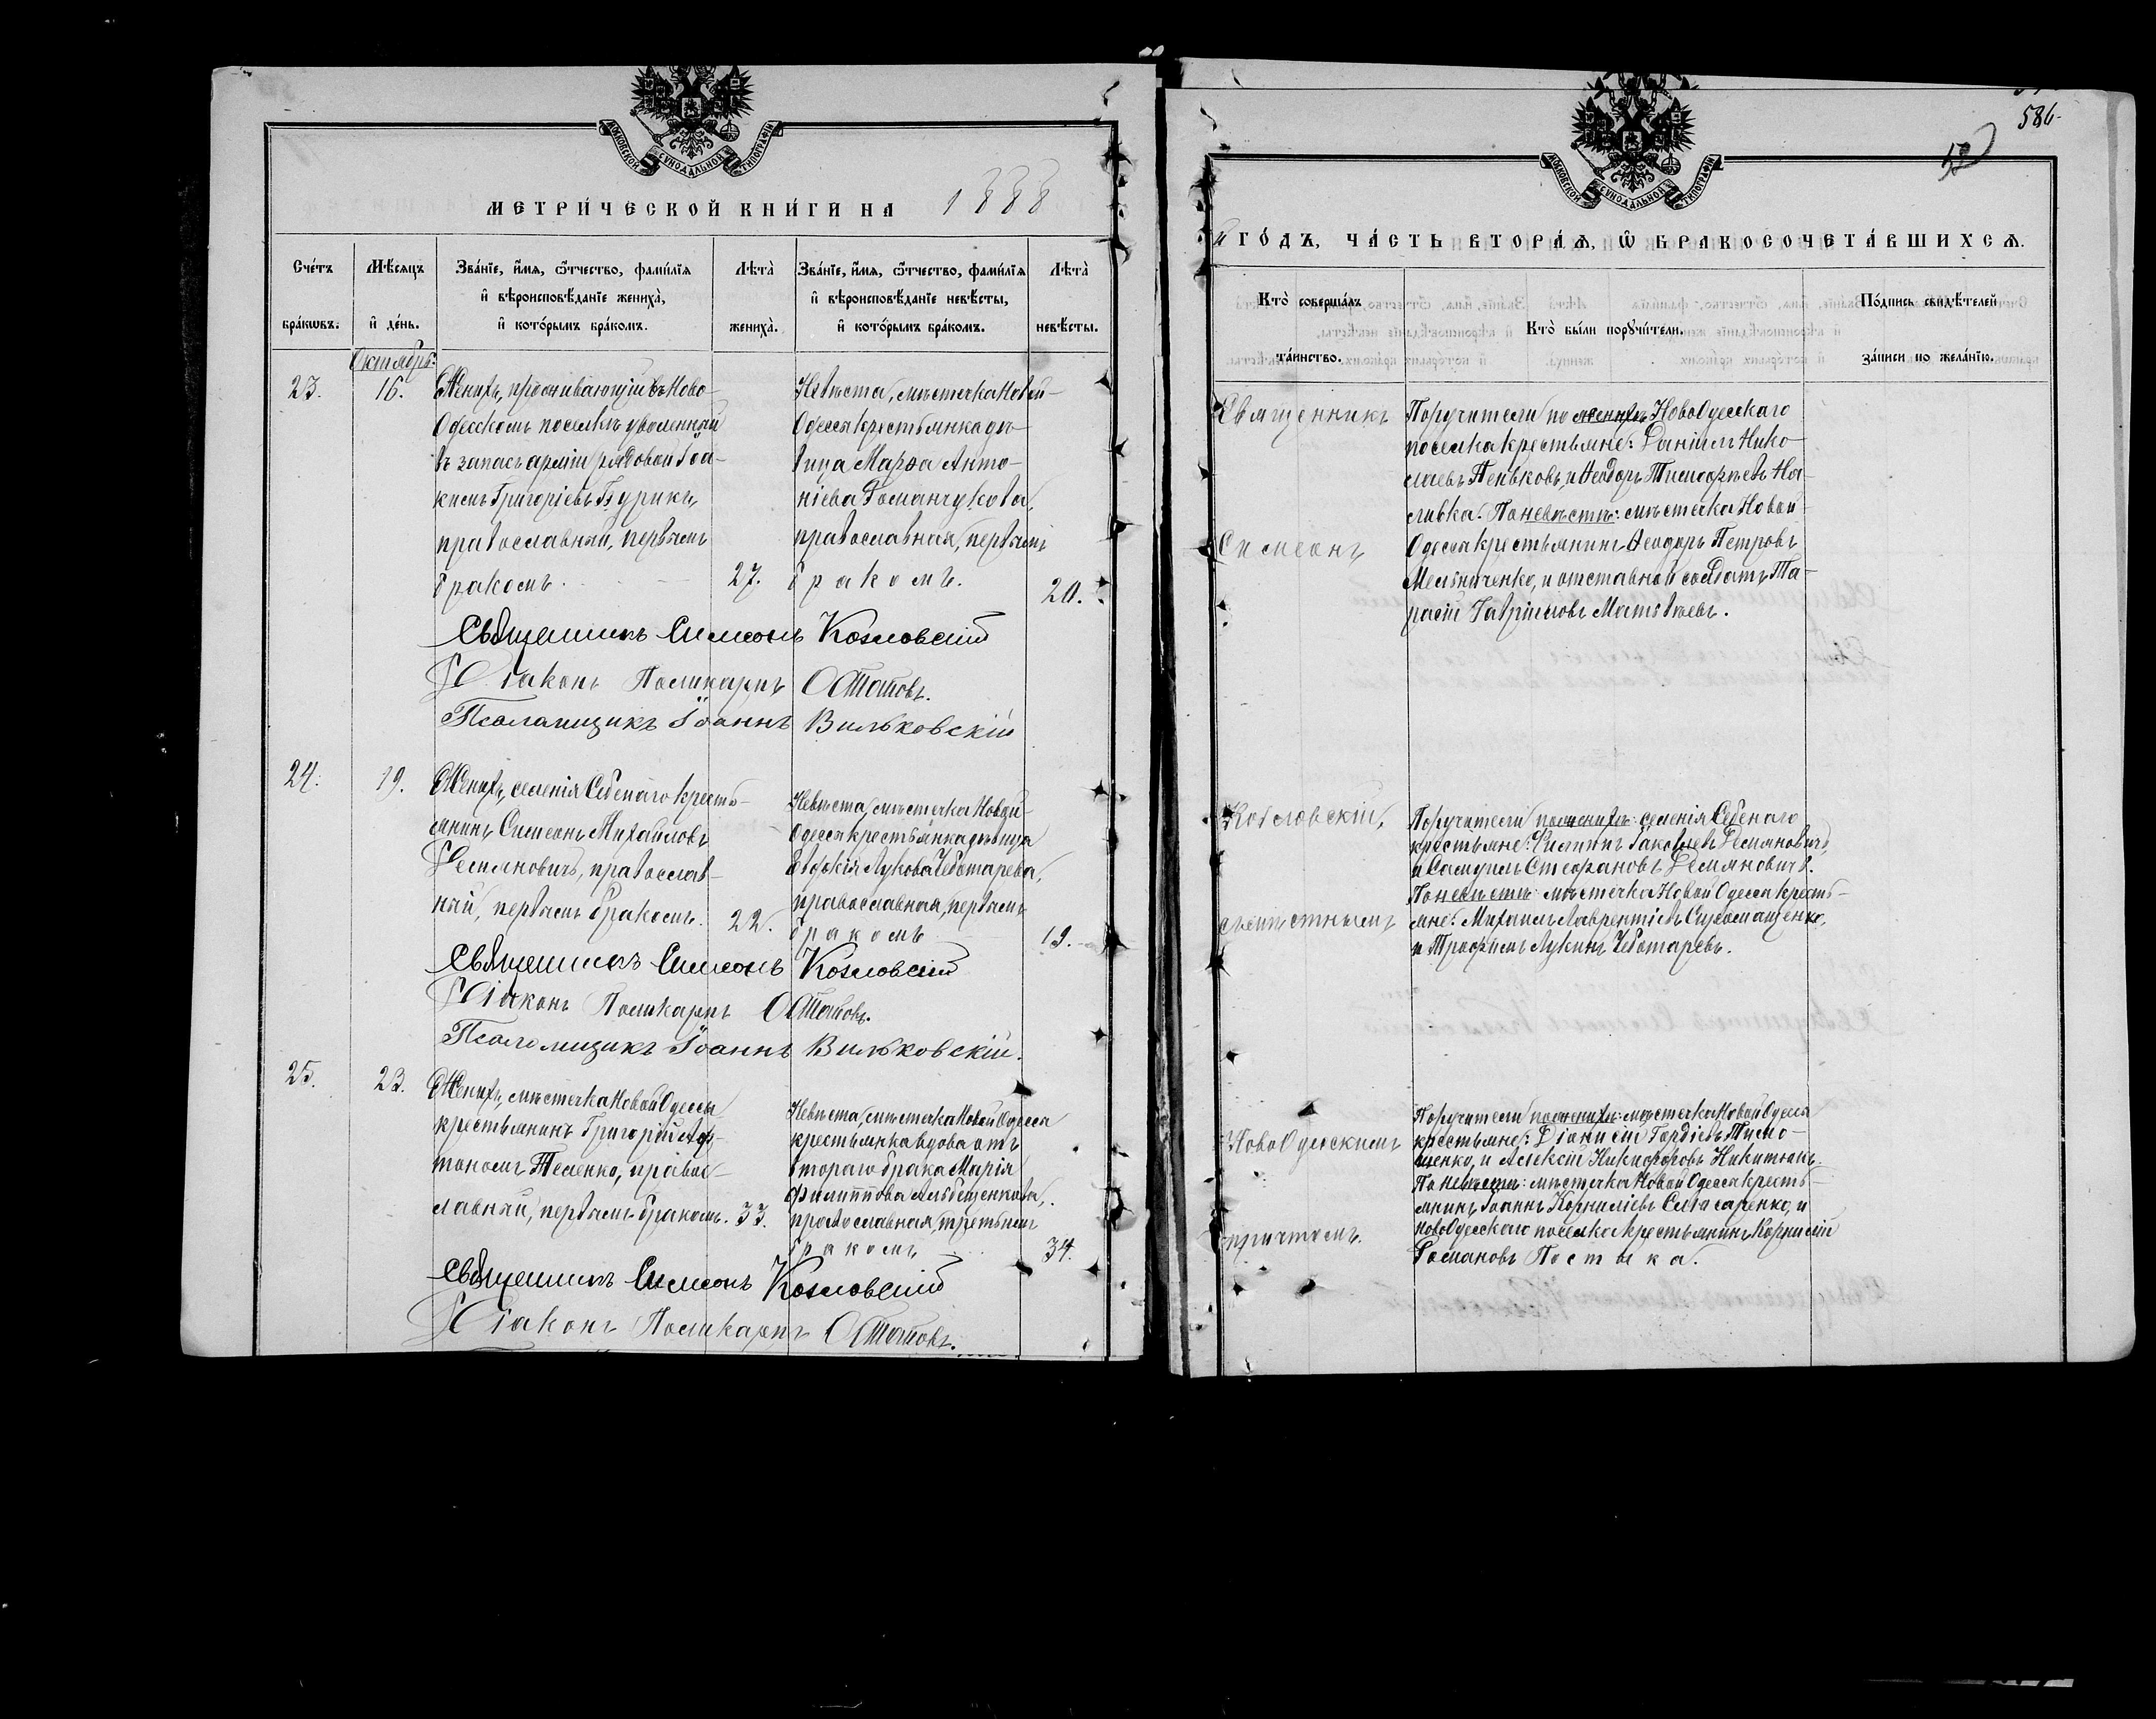 МОСКОВСКОЙ СѴНОДАЛЬНОЙ ТИПОГРАФІИ
МЕТРИ́ЧЕСКОЙ КНИ́ГИ НА 1888
Сче́тъ бра́кѡвъ.
Мѣ́сяцъ и҆ де́нь.
Зва́нїе, и҆́мя, ѻ҆́тчество, фами́лїя
и҆ вѣроисповѣ́данїе жениха̀,
и҆ кото́рымъ бра́комъ.
Лѣта̀ жениха̀.
Зва́нїе, и҆́мя, ѻ҆́тчество, фами́лїя
и҆ вѣроисповѣ́данїе невѣ́сты,
и҆ кото́рымъ бра́комъ.
Лѣта̀ невѣ́сты.
Октябрь
23.
16.
Женихъ, проживающій въ Ново-
Одесскомъ поселкѣ уволенный
въ запасъ арміи рядовой Іоа-
кимъ Григоріевъ Бурикъ,
православный, первымъ
бракомъ.
27.
Невѣста, мѣстечка Новой-
Одессы крестьянка дѣ-
вица Марѳа Анто-
ніева Романчукова,
православная, первымъ
бракомъ.
20.
Священникъ Симеонъ Козловскій
Діаконъ Поликарпъ
Псаломщикъ Іоаннъ Вильковскій
24.
19.
Женихъ, селенія Себенаго кресть-
янинъ Симеонъ Михайловъ
Демяновичъ, православ-
ный, первымъ бракомъ.
22.
Невѣста, мѣстечка Новой-
Одессы крестьянка дѣвица
Евдокія Лукова Чеботарева,
православная, первымъ
бракомъ
19.
Священникъ Симеонъ Козловскій
Діаконъ Поликарпъ
Псаломщикъ Іоаннъ Вильковскій.
25.
23.
Женихъ, мѣстечка Новой Одессы
крестьянинъ Григорій
православ-
лавный, первымъ бракомъ.
33.
Невѣста, мѣстечка Новой Одесса
крестьянка вдова отъ
втораго брака Марія
Филиппова
православная, третьимъ
бракомъ
34.
Священникъ Симеонъ Козловскій
Діаконъ Поликарпъ
586.
МОСКОВСКОЙ СѴНОДАЛЬНОЙ ТИПОГРАФІИ
ГО́ДЪ, ЧА́СТЬ ВТОРА́Ѧ, Ѽ БРАКОСОЧЕТА́ВШИХСѦ.
Кто̀ соверша́лъ
та́инство.
Кто̀ бы́ли порꙋчи́тели.
По́дпись свидѣ́телей
за́писи по жела́нїю.
Священникъ
Симеонъ
Козловскій,
съ мѣстнымъ
НовоОдесскимъ
причтомъ.
Поручители по женихѣ НовоОдесскаго
поселка крестьяне: Даніилъ Нико-
лаевъ Пеньковъ, и Ѳеодоръ Тимофѣевъ На-
ливка. По невѣстѣ: мѣстечка Новой
Одессы крестьянинъ Ѳеодоръ Петровъ
Мельниченко, и отставной солдатъ Та-
расій Гавриловъ Матвѣевъ.
Поручители по женихѣ: селенія Себенаго
крестьяне: Филиппъ Яковлевъ Демяновичъ,
и Самуилъ Стефановъ Демяновичъ.
По невѣстѣ: мѣстечка Новой Одесса кресть-
яне: Михаилъ Лаврентіевъ
и Трофимъ Лукинъ Чеботаревъ.
Поручители по женихѣ: мѣстечка Новой Одесса
крестьяне: Діонисій Гордіевъ Тимо-
шенко, и Алексій Никифоровъ Никитюкъ.
По невѣстѣ: мѣстечка Новой Одесса кресть-
янинъ Іоаннъ Корниліевъ Слюсаренко, и
НовоОдесскаго поселка крестьянинъ Корнилій
Романовъ Постыка.